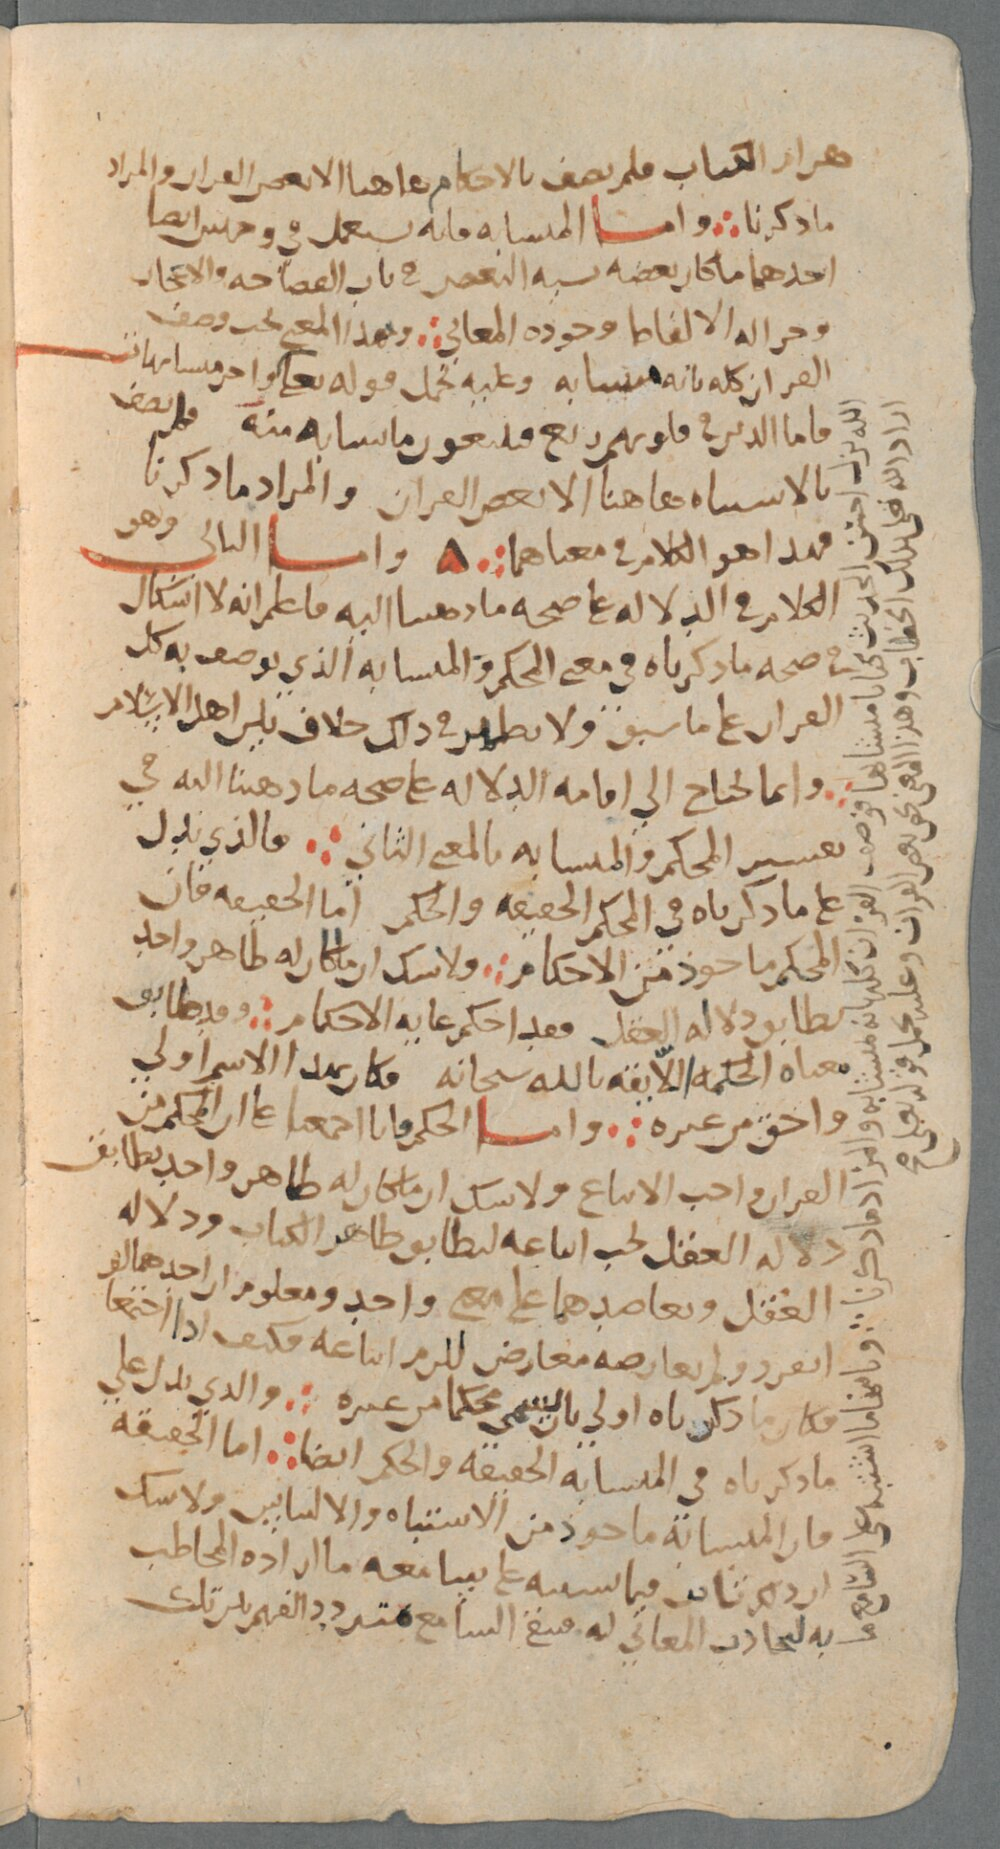 هن ام الكتاب فلم يصف بالاحكام هاهنا الا بعض القران والمراد
ما ذكرنا وامــا المتشابه فانه يستعمل في وجهين ايضا
احدهما ما كان بعضه يشبه البعض في باب الفصاحه والاعجاز
وجزاله الالفاظ وجوده المعاني وبهذا المعنى يجب وصف
القران كله بانه متشابه وعليه يحمل قوله تعالى واخر متشابهات
فاما الذين في قلوبهم زيغ فيتبعون ما تشابه منه فلم يصف
بالاشتباه هاهنا الا بعض القران والمراد ما ذكرنا
فهذا هو الكلام في معناهما وامــا الثاني وهو
الكلام في الدلاله على صحه ما ذهبنا اليه فاعلم انه لا اشكال
في صحه ما ذكرناه في معنى المحكم والمتشابه الذي يوصف به كل
القران على ما سبق ولا يظهر في ذلك خلاف بين اهل الاسلام
وانما نحتاج الي اقامه الدلاله على صحه ما ذهبنا اليه في
تفسير المحكم والمتشابه بالمعنى الثاني فالذي يدل
على ما ذكرناه في المحكم الحقيقه والحكم اما الحقيقه فان
المحكم ماخوذ من الاحكام ولا شك ان ما كان له ظاهر واحد
يطابق دلاله العقل فقد احكم غايه الاحكام وقد طابق
معناه الحكمه اللايقه بالله سبحانه فكان بهذا الاسم اولي
واحق من غيره وامــا الحكم فانا اجمعنا على ان المحكم من
القران واجب الاتباع ولا شك ان ما كان له ظاهر واحد يطابق
دلاله العقل يجب اتباعه لتطابق ظاهر الكتاب ودلاله
العقل وتعاضدهما على معنى واحد ومعلوم ان احدهما لو
انفرد ولم يعارضه معارض للزم اتباعه فكيف اذا اجتمعا
فكان ما ذكرناه اولي بان يسمى محكما من غيره والذي يدل علي
ما ذكرناه في المتشابه الحقيقه والحكم ايضا اما الحقيقه
فان المتشابه ماخوذ من الاشتباه والالتباس ولا شك
ان ما يشتبه على سامعه ما اراده المخاطب
به لتجاذب المعاني له فيبقى السامع متردد الفهم بين تلك
الله نزل احسن الحديث كتابا متشابها فوصف القران كله بانه متشابه والمراد ما ذكرنا وثانيهما ما اشتبه على السامع ما
اراد الله تعالى بذلك الخطاب وهذا المعنى يخص بعض القران وعليه يحمل قوله تعالى